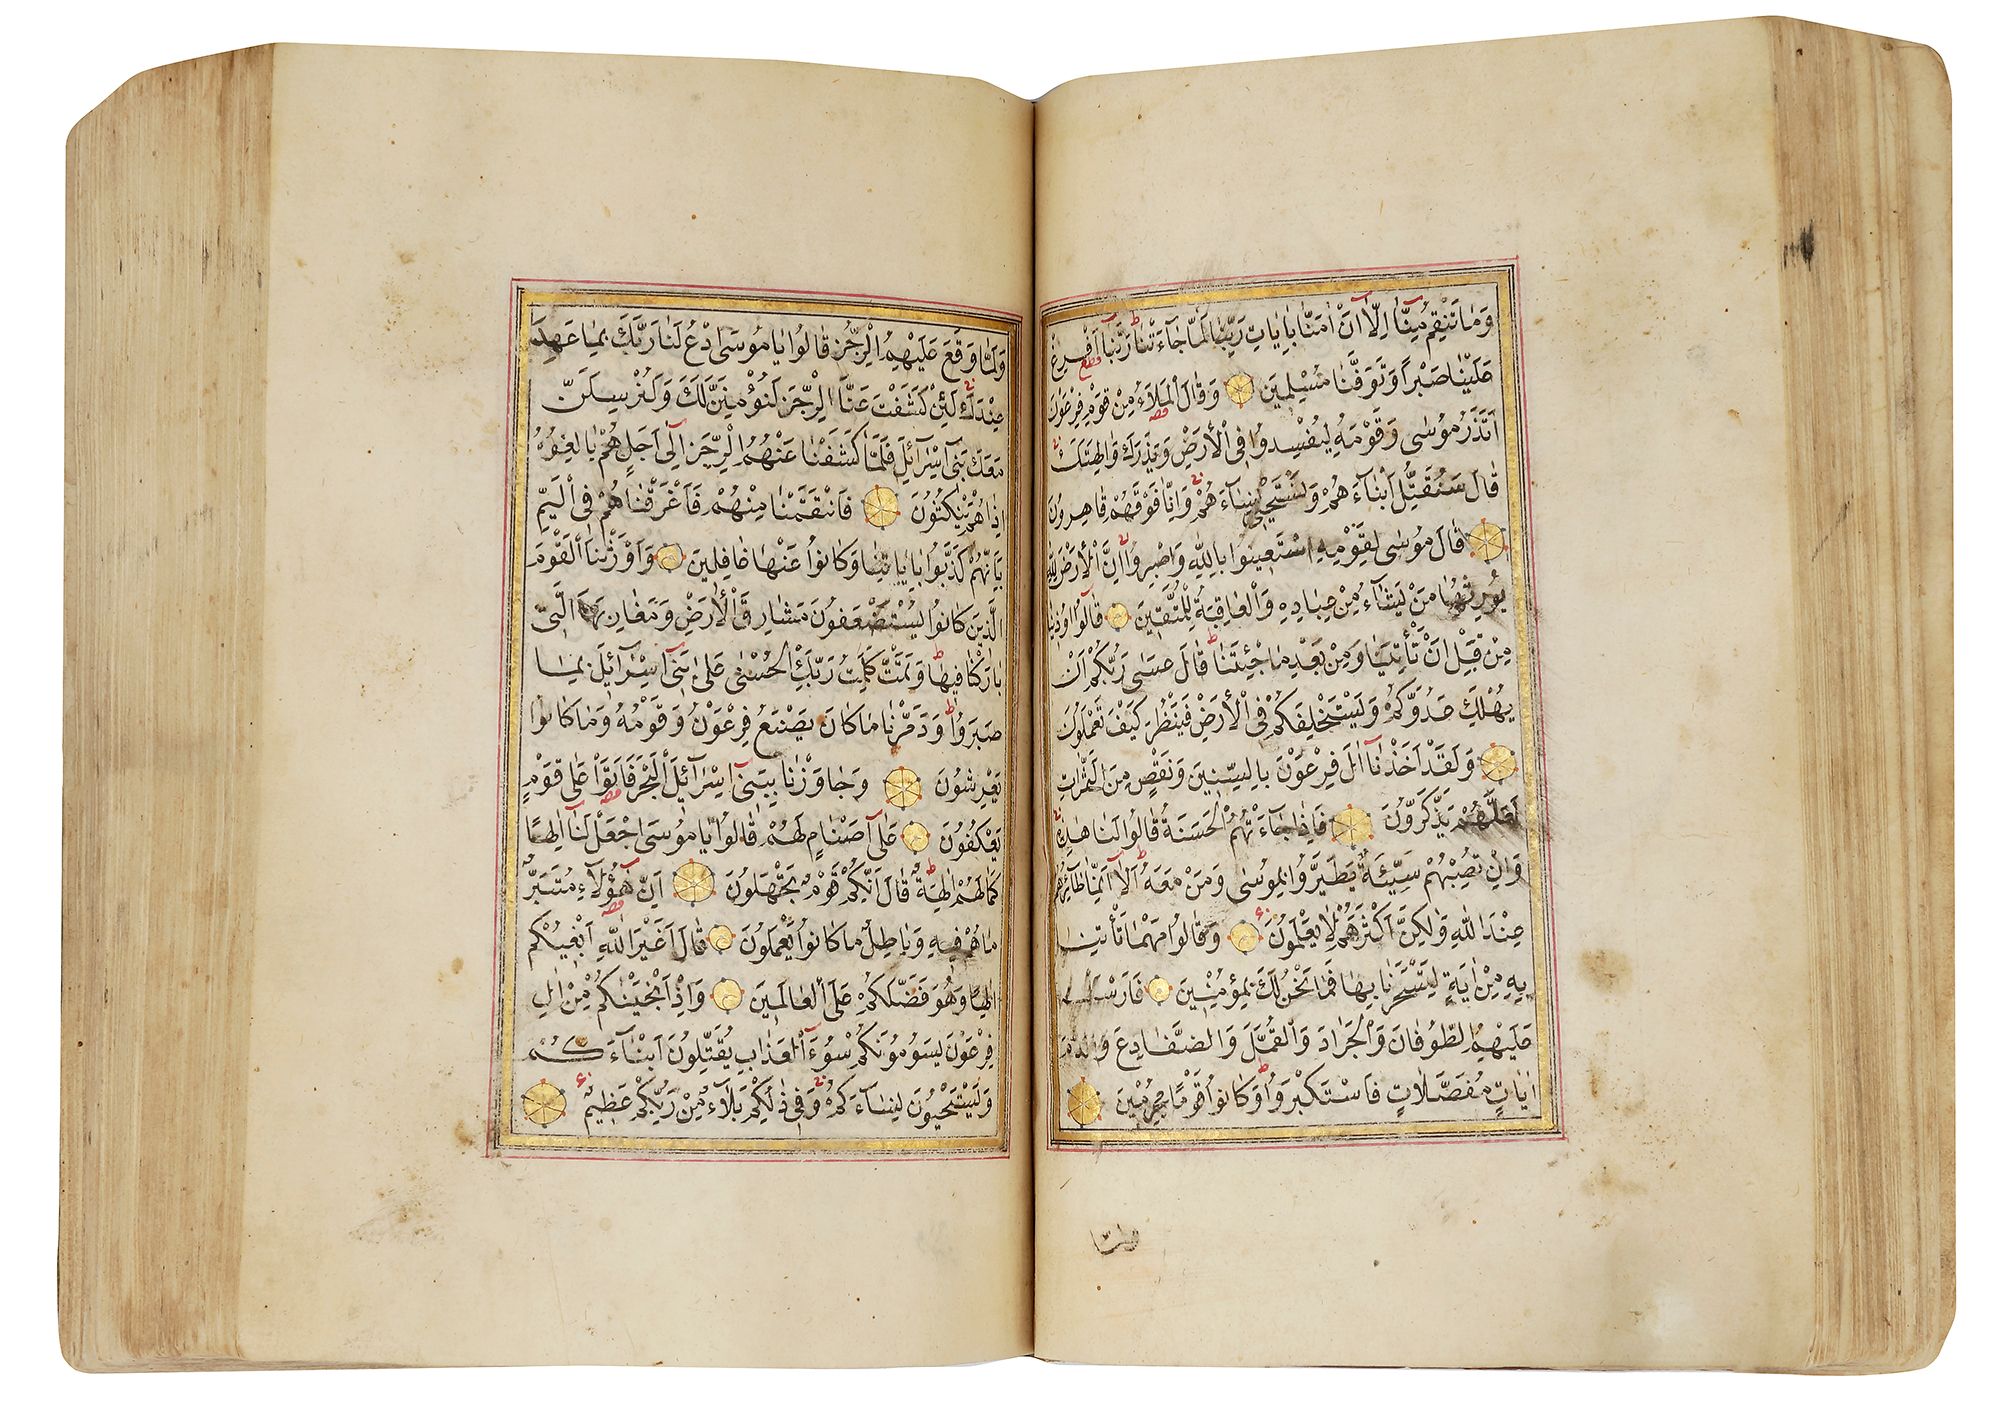 وَمَا تَنْقِمُ مِنَّا اِلَّا اَنْ اٰمَنَّا بِاٰيَاتِ رَبِّنَا لَمَّا جَاۤءَتْنَا رَبَّنَا اَفْرِغْ
عَلَيْنَا صَبْرًا وَتَوَفَّنَا مُسْلِمِينَ وَقَالَ الْمَلَاُ مِنْ قَوْمِ فِرْعَوْنَ
اَتَذَرُ مُوسٰى وَقَوْمَهُ لِيُفْسِدُوا فِى الْاَرْضِ وَيَذَرَكَ وَاٰلِهَتَكَ
قَالَ سَنُقَتِّلُ اَبْنَاۤءَهُمْ وَنَسْتَحْيِى نِسَاۤءَهُمْ وَاِنَّا فَوْقَهُمْ قَاهِرُونَ
قَالَ مُوسٰى لِقَوْمِهِ اسْتَعِينُوا بِاللّٰهِ وَاصْبِرُوا اِنَّ الْاَرْضَ لِلّٰهِ
يُورِثُهَا مَنْ يَشَاۤءُ مِنْ عِبَادِهِ وَالْعَاقِبَةُ لِلْمُتَّقِينَ قَالُوا اُوذِينَا
مِنْ قَبْلِ اَنْ تَأْتِيَنَا وَمِنْ بَعْدِ مَا جِئْتَنَا قَالَ عَسٰى رَبُّكُمْ اَنْ
يُهْلِكَ عَدُوَّكُمْ وَيَسْتَخْلِفَكُمْ فِى الْاَرْضِ فَيَنْظُرَ كَيْفَ تَعْمَلُونَ
وَلَقَدْ اَخَذْنَا اٰلَ فِرْعَوْنَ بِالسِّنِينَ وَنَقْصٍ مِنَ الثَّمَرَاتِ
لَعَلَّهُمْ يَذَّكَّرُونَ فَاِذَا جَاۤءَتْهُمُ الْحَسَنَةُ قَالُوا لَنَا هٰذِهِ
وَاِنْ تُصِبْهُمْ سَيِّئَةٌ يَطَّيَّرُوا بِمُوسٰى وَمَنْ مَعَهُ اَلَا اِنَّمَا طَاۤئِرُهُمْ
عِنْدَ اللّٰهِ وَلٰكِنَّ اَكْثَرَهُمْ لَا يَعْلَمُونَ وَقَالُوا مَهْمَا تَأْتِنَا
بِهِ مِنْ اٰيَةٍ لِتَسْحَرَنَا بِهَا فَمَا نَحْنُ لَكَ بِمُؤْمِنِينَ فَاَرْسَلْنَا
عَلَيْهِمُ الطُّوفَانَ وَالْجَرَادَ وَالْقُمَّلَ وَالضَّفَادِعَ وَالدَّمَ
اٰيَاتٍ مُفَصَّلَاتٍ فَاسْتَكْبَرُوا وَكَانُوا قَوْمًا مُجْرِمِينَ
ولمّا
وَلَمَّا وَقَعَ عَلَيْهِمُ الرِّجْزُ قَالُوا يَا مُوسَى ادْعُ لَنَا رَبَّكَ بِمَا عَهِدَ
عِنْدَكَ لَئِنْ كَشَفْتَ عَنَّا الرِّجْزَ لَنُؤْمِنَنَّ لَكَ وَلَنُرْسِلَنَّ
مَعَكَ بَنِى اِسْرَاۤئِلَ فَلَمَّا كَشَفْنَا عَنْهُمُ الرِّجْزَ اِلٰى اَجَلٍ هُمْ بَالِغُوهُ
اِذَا هُمْ يَنْكُثُونَ فَانْتَقَمْنَا مِنْهُمْ فَاَغْرَقْنَاهُمْ فِى الْيَمِّ
بِاَنَّهُمْ كَذَّبُوا بِاٰيَاتِنَا وَكَانُوا عَنْهَا غَافِلِينَ وَاَوْرَثْنَا الْقَوْمَ
الَّذِينَ كَانُوا يُسْتَضْعَفُونَ مَشَارِقَ الْاَرْضِ وَمَغَارِبَهَا الَّتِى
بَارَكْنَا فِيهَا وَتَمَّتْ كَلِمَتُ رَبِّكَ الْحُسْنٰى عَلٰى بَنِى اِسْرَاۤئِلَ بِمَا
صَبَرُوا وَدَمَّرْنَا مَا كَانَ يَصْنَعُ فِرْعَوْنُ وَقَوْمُهُ وَمَا كَانُوا
يَعْرِشُونَ وَجَاوَزْنَا بِبَنِى اِسْرَاۤئِلَ الْبَحْرَ فَاَتَوْا عَلٰى قَوْمٍ
يَعْكُفُونَ عَلٰى اَصْنَامٍ لَهُمْ قَالُوا يَا مُوسَى اجْعَلْ لَنَا اِلٰهًا
كَمَا لَهُمْ اٰلِهَةٌ قَالَ اِنَّكُمْ قَوْمٌ تَجْهَلُونَ اِنَّ هٰؤُلَاۤءِ مُتَبَّرٌ
مَا هُمْ فِيهِ وَبَاطِلٌ مَا كَانُوا يَعْمَلُونَ قَالَ اَغَيْرَ اللّٰهِ اَبْغِيكُمْ
اِلٰهًا وَهُوَ فَضَّلَكُمْ عَلَى الْعَالَمِينَ وَاِذْ اَنْجَيْنَاكُمْ مِنْ اٰلِ
فِرْعَوْنَ يَسُومُونَكُمْ سُوۤءَ الْعَذَابِ يُقَتِّلُونَ اَبْنَاۤءَكُمْ
وَيَسْتَحْيُونَ نِسَاۤءَكُمْ وَفِى ذٰلِكُمْ بَلَاۤءٌ مِنْ رَبِّكُمْ عَظِيمٌ